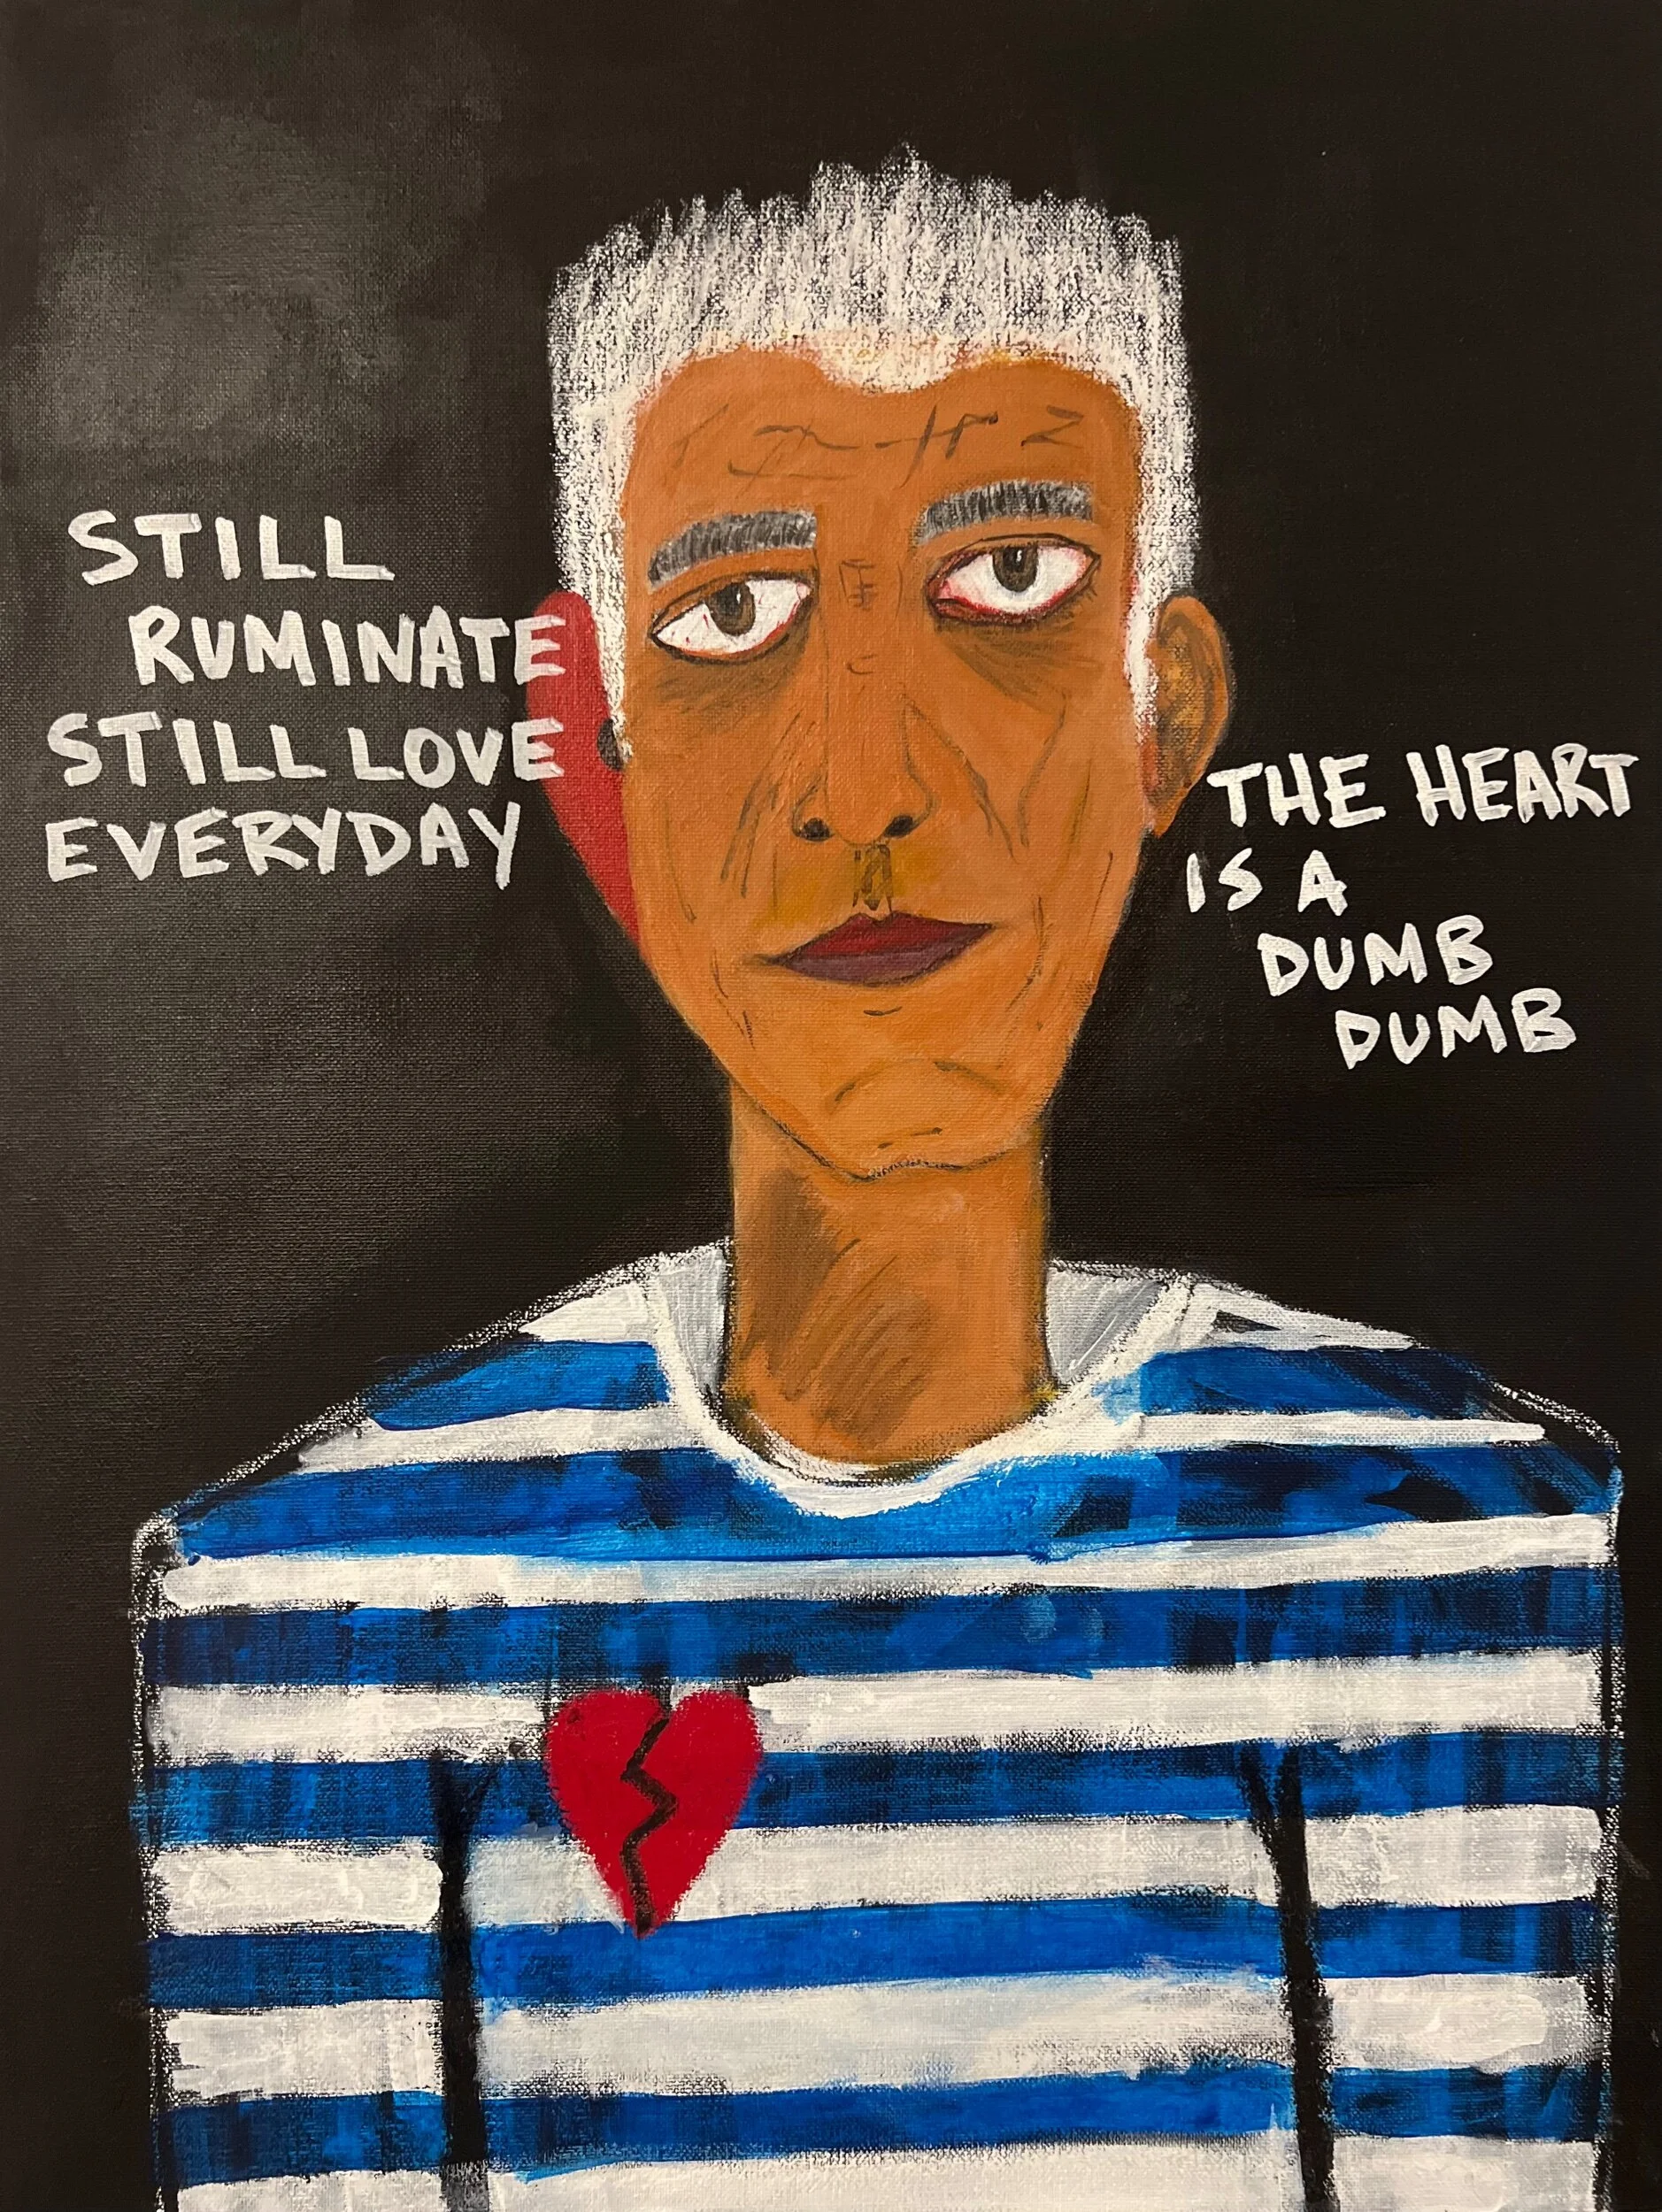 STILL
RUMINATE
STILL LOVE
EVERYDAY
THE HEART
IS A
DUMB
DUMB